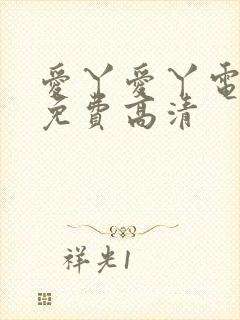 愛丫愛丫電
免費高清
祥光1